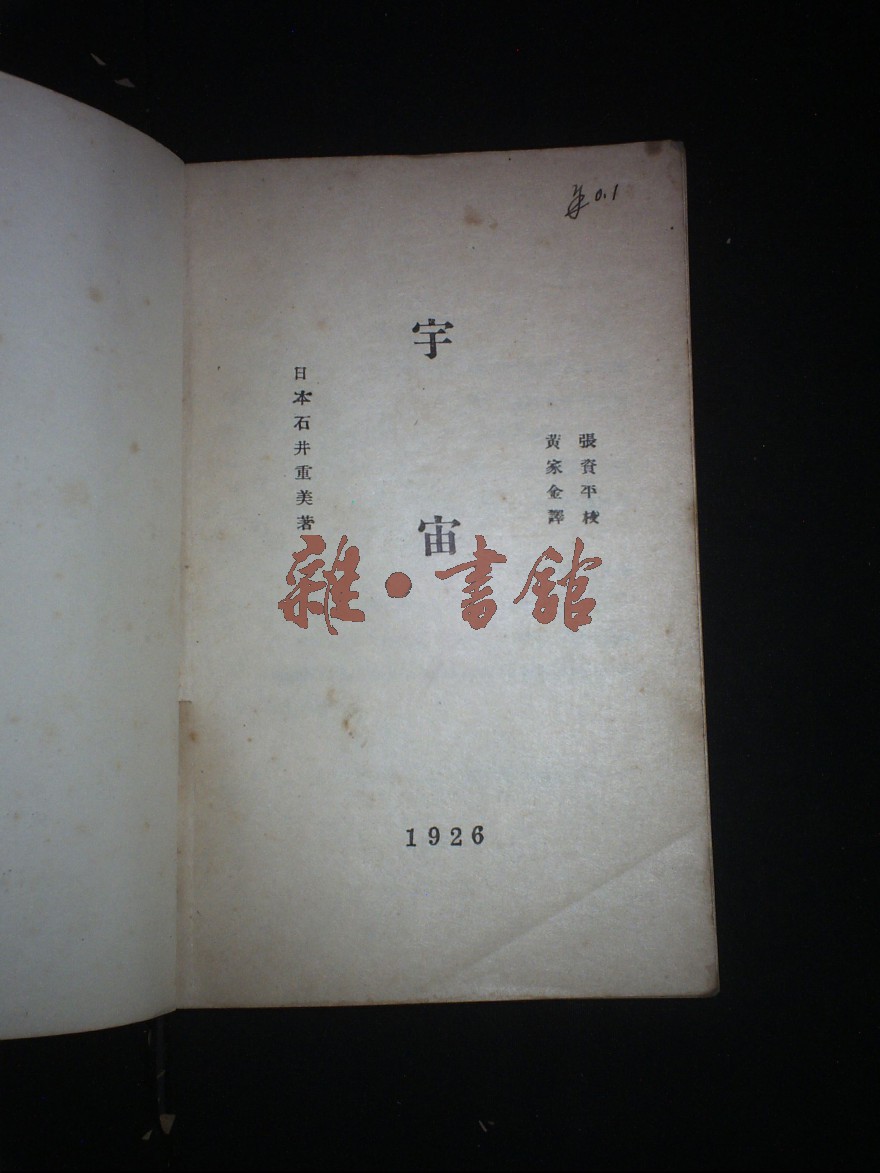 宇宙
張資平校
黃家金譯
日本石井重美著
1926
0.1
雜·書館